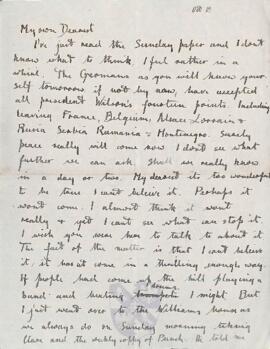 My own Dearest
I've just read the Sunday paper and I don't
know what to think. I feel rather in a
whirl. The Germans as you will know your
self tomorrow if not by now, have accepted
all president Wilson's fourteen points. Including
leaving France, Belgium, Alsace Lorraine &
Russia Serbia Rumania & Montenegro. Surely
peace really will come now I don't see what
further we can ask. Shall we really know
in a day or two. My dearest its too wonderful
to be true I can't believe it. Perhaps it
won't come. I almost think it won't
really & yet I can't see what can stop it.
I wish you were near to talk to about it
The fact of the matter is that I can't believe
it has come in a thrilling enough way.
If people had come up the hill playing a
band and beating drums I might But
I just went over to the Williams house as
we always do on Sunday morning taking
Clare and the weekly copy of Punch. He told me